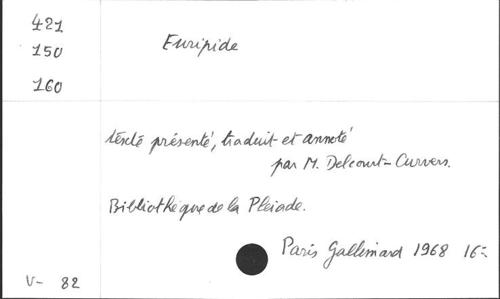 421
150
160
Euripide
texte présenté, traduit et annoté
par M. Delcourt-Curvers.
Bibliothèque de la Pleiade.
Paris Gallimard 1968 16=
V- 82